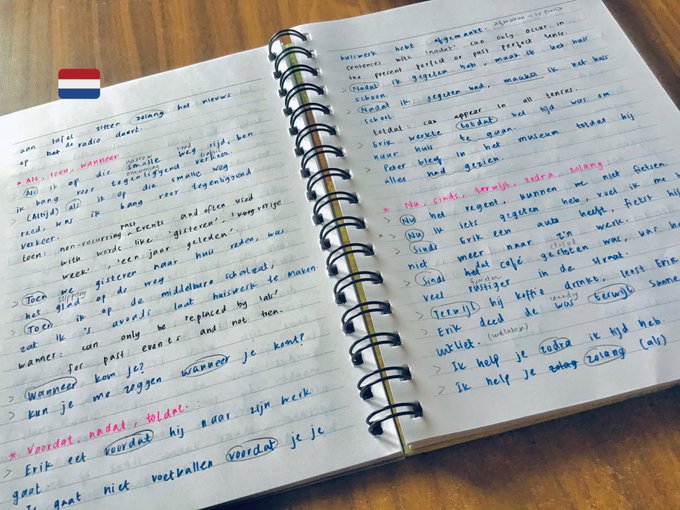 aan tafel zitten zolang het nieuws
op het de radio duurt.
* Als, toen, wanneer
narrow road
> Als ik op die smalle weg rijd, ben
oncoming traffic
ik bang voor tegenliggend verkeer.
> (Altijd) als ik op die smalle weg
reed, was ik bang voor tegenliggend
verkeer.
past
toen: non-recurring events and often used
with words like 'gisteren', 'vorige
week', 'een jaar geleden'.
> Toen we gisteren naar huis reden, was
slippery
het glad op de weg.
> Toen ik op de middelbare school zat,
zat ik 's avonds laat huiswerk te maken.
wanneer: can only be replaced by 'als'
for past events and not toen.
> Wanneer kom je?
> Kun je me zeggen wanneer je komt?
* Voordat, nadat, totdat.
> Erik eet voordat hij naar zijn werk
gaat.
gaat niet voetballen voordat je je
huiswerk hebt afgemaakt. afmaken - to finish
sentences with 'nadat' can only occur in
the present perfect or past perfect tense.
> Nadat ik gegeten heb, maak ik het huis
schoon.
> Nadat ik gegeten had, maakte ik het huis
school.
totdat: can appear in all tenses.
> Erik werkte totdat het tijd was om
naar huis te gaan.
> Peter bleef in het museum totdat hij
alles had gezien.
* Nu, sinds, terwijl, zodra, zolang
> Nu het regent, kunnen we niet fietsen.
> Nu ik iets gegeten heb, voel ik me
> Sinds Erik een auto heeft, fietst hij
niet meer naar z'n werk.
closed
> Sinds het café gesloten was, was
veel rustiger in de straat.
> Terwijl hij koffie drinkt, leest Erik
laundry
> Erik deed de was terwijl Sanne
uitliet. (uitlaten)
> Ik help je zodra ik tijd heb
> Ik help je zolang (als)